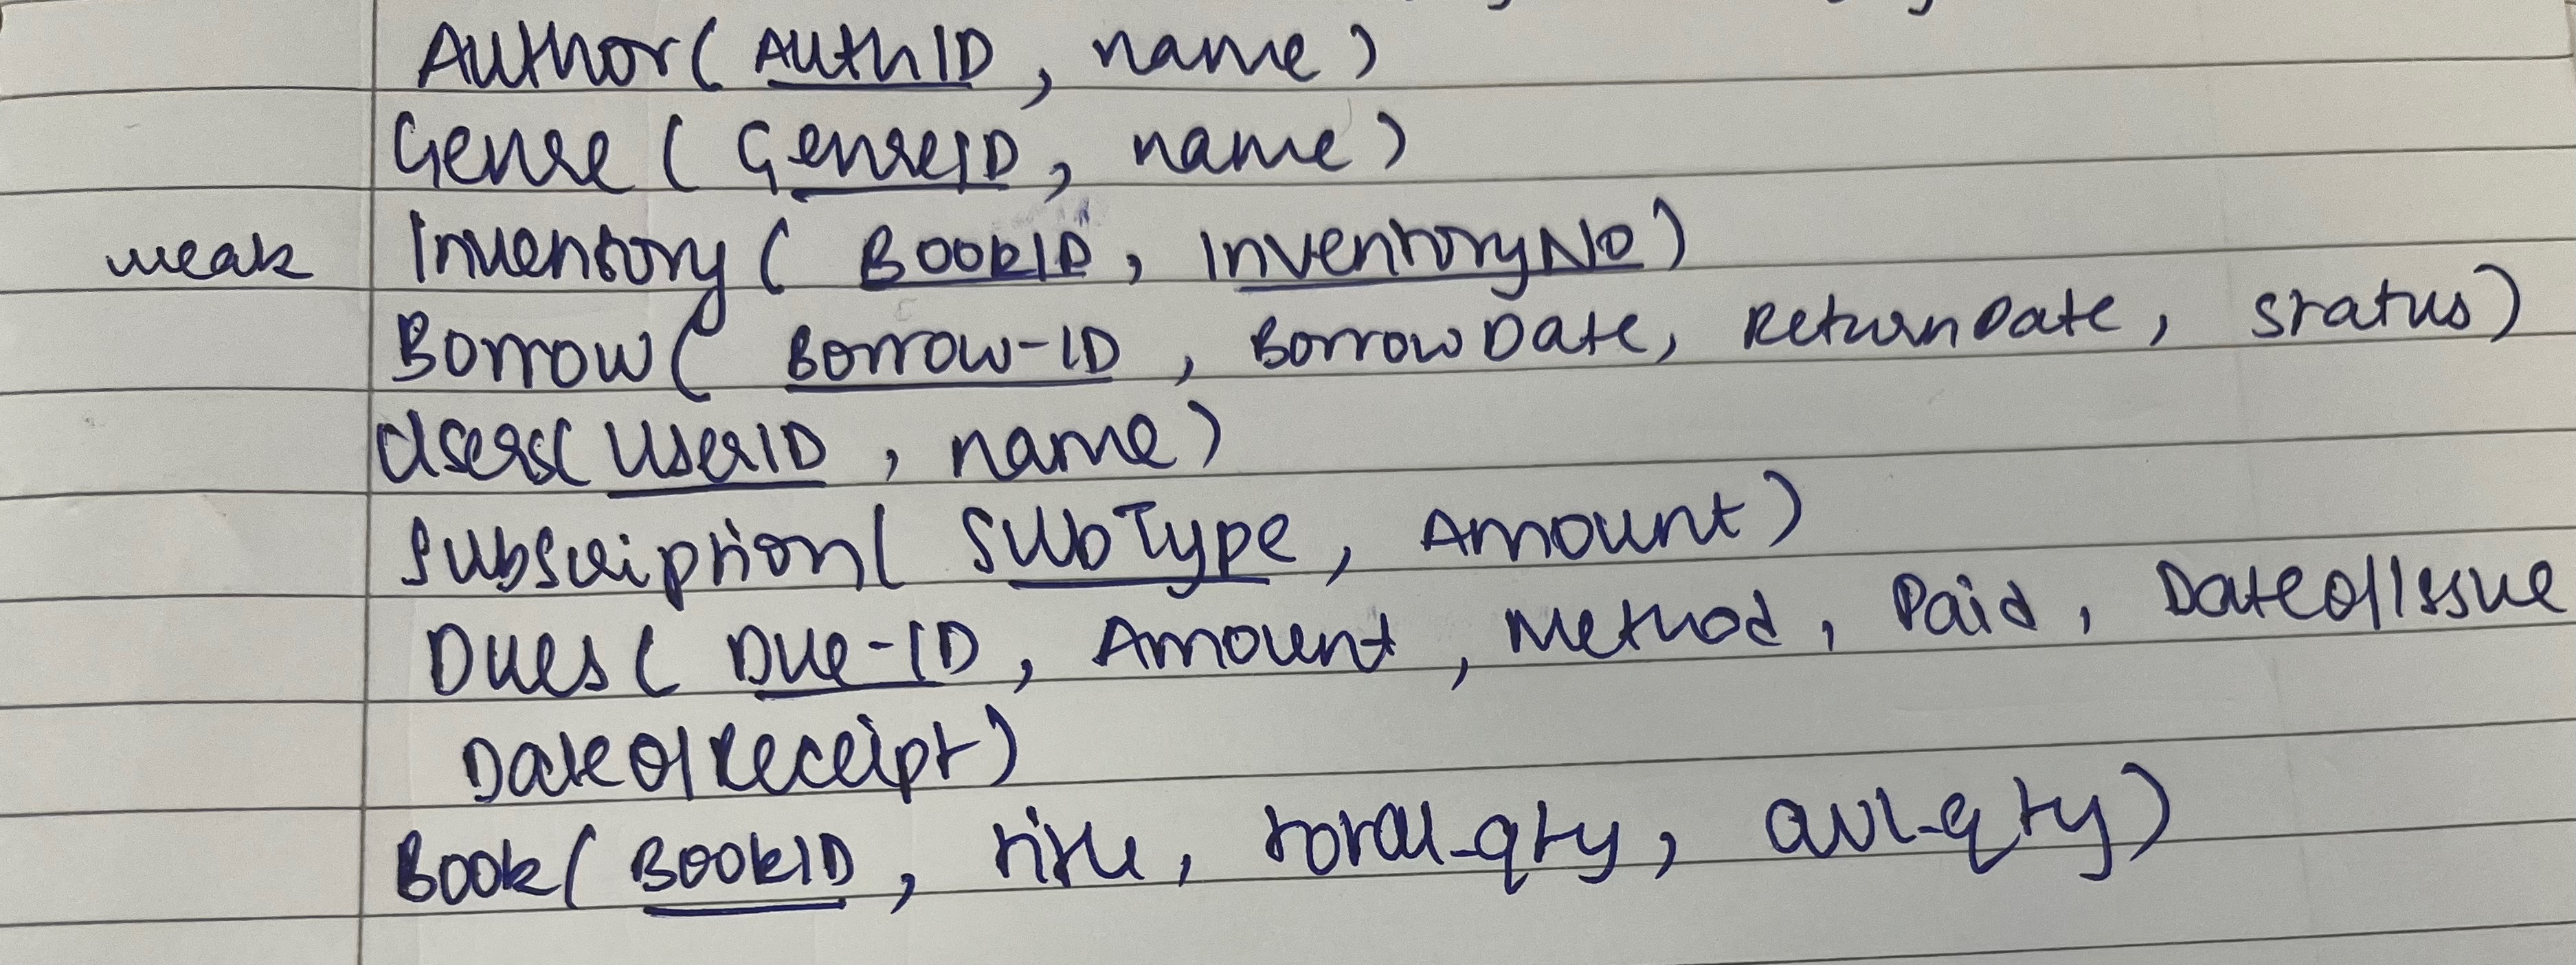 Author( AuthID, name)
Genre ( GenreID, name)
weak Inventory ( BookID, InventoryNo)
Borrow( Borrow-ID, BorrowDate, ReturnDate, status)
Users( UserID, name)
Subscription( SubType, Amount)
Dues ( Due-ID, Amount, Method, Paid, DateofIssue
DateofReceipt)
Book( BookID, title, total-qty, avl-qty)